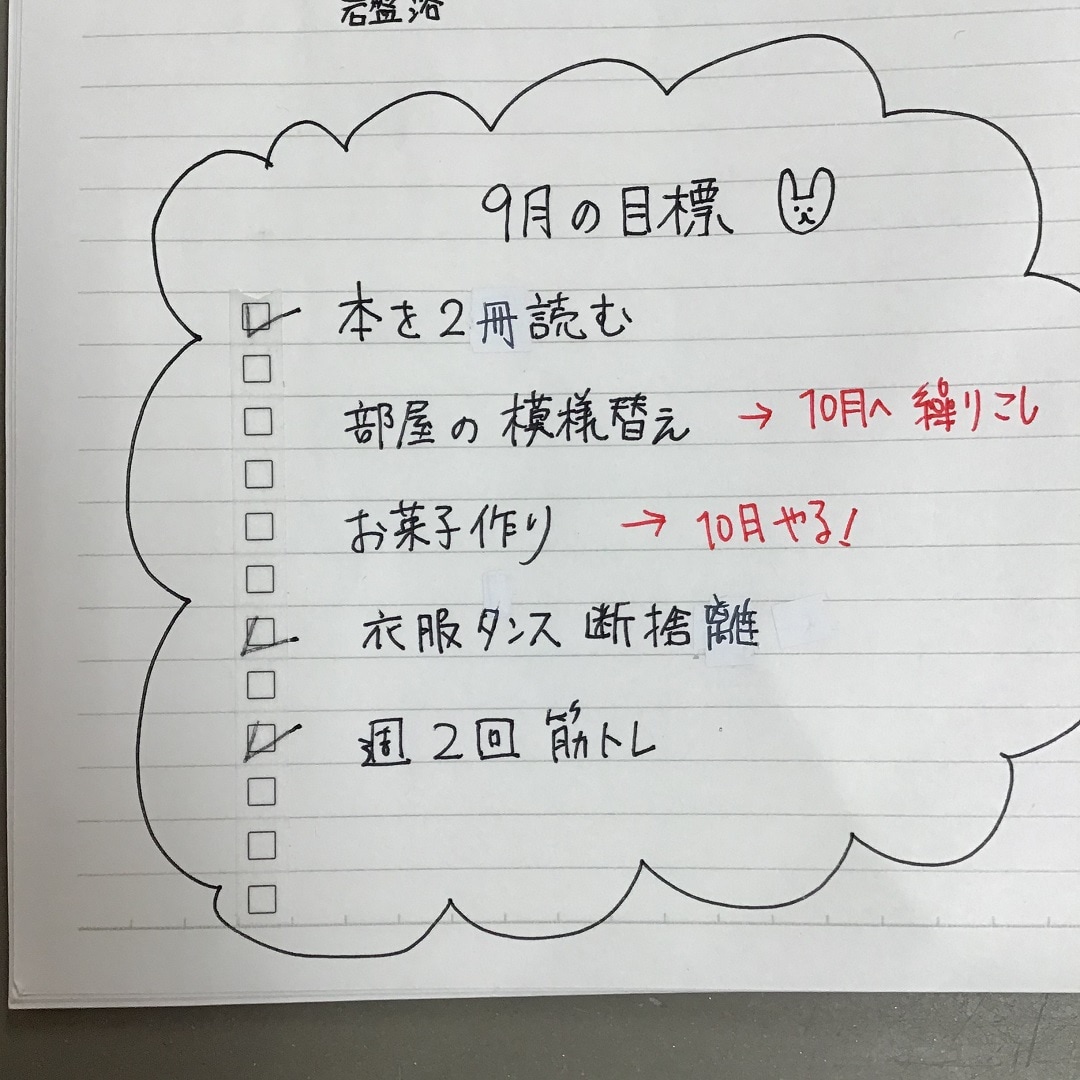 岩盤浴
9月の目標
本を2冊読む
部屋の模様替え → 10月へ繰りこし
お菓子作り → 10月やる!
衣服タンス断捨離
週2回筋トレ